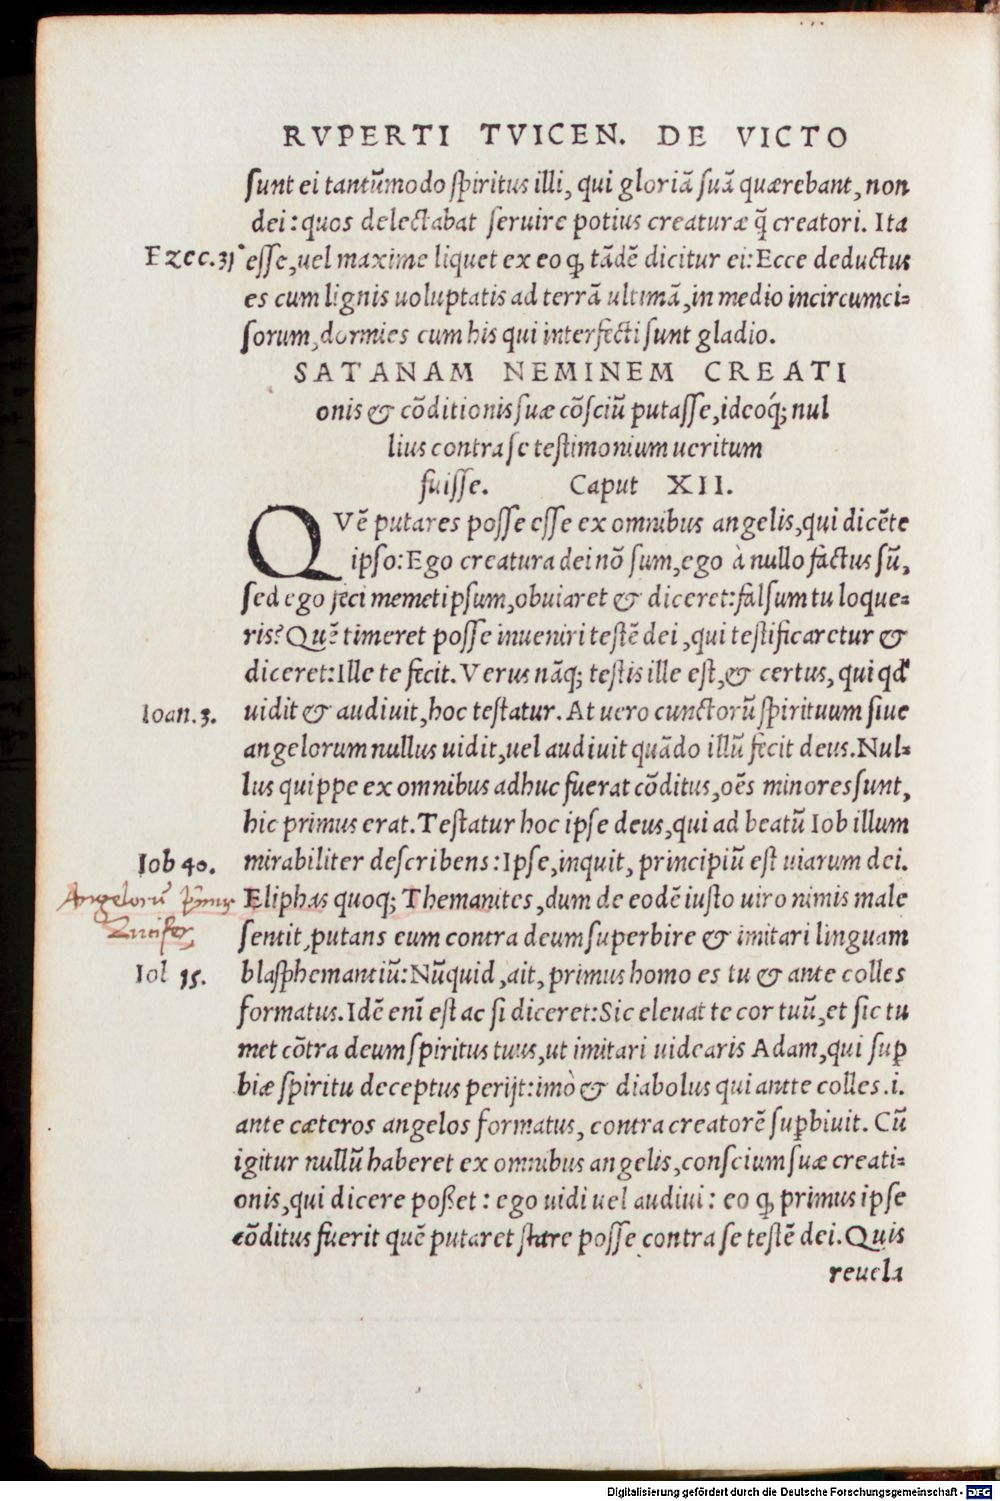 RVPERTI TVICEN. DE VICTO
sunt ei tantũmodo spiritus illi, qui gloriã suã quærebant, non
dei: quos delectabat seruire potius creaturæ q̃ creatori. Ita
Ezec.31 esse, uel maxime liquet ex eo ꝙ tãdẽ dicitur ei: Ecce deductus
es cum lignis uoluptatis ad terrã ultimã, in medio incircumci=
sorum, dormies cum his qui interfecti sunt gladio.
SATANAM NEMINEM CREATI
onis & cõditionis suæ cõsciũ putasse, ideoq́; nul
lius contra se testimonium ueritum
fuisse. Caput XII.
QVẽ putares posse esse ex omnibus angelis, qui dicẽte
ipso: Ego creatura dei nõ sum, ego à nullo factus sũ,
sed ego feci memetipsum, obuiaret & diceret: falsum tu loque=
ris? Quẽ timeret posse inueniri testẽ dei, qui testificaretur &
diceret: Ille te fecit. Verus nãq; testis ille est, & certus, qui qđ
Ioan.3. uidit & audiuit, hoc testatur. At uero cunctorũ spirituum siue
angelorum nullus uidit, uel audiuit quãdo illũ fecit deus. Nul=
lus quippe ex omnibus adhuc fuerat cõditus, oẽs minores sunt,
hic primus erat. Testatur hoc ipse deus, qui ad beatũ Iob illum
Iob 40. mirabiliter describens: Ipse, inquit, principiũ est uiarum dei.
Angelorũ p̃mus Eliphas quoq; Themanites, dum de eodẽ iusto uiro nimis male
Lucifer sentit, putans eum contra deum superbire & imitari linguam
Iol 15. blasphemantiũ: Nũquid, ait, primus homo es tu & ante colles
formatus. Idẽ enĩ est ac si diceret: Sic eleuat te cor tuũ, et sic tu
met cõtra deum spiritus tuus, ut imitari uidearis Adam, qui suꝑ
biæ spiritu deceptus perijt: imò & diabolus qui antte colles .i.
ante cæteros angelos formatus, contra creatorẽ suꝑbiuit. Cũ
igitur nullũ haberet ex omnibus angelis, conscium suæ creati=
onis, qui dicere poßet: ego uidi uel audiui: eo ꝙ primus ipse
cõditus fuerit quẽ putaret stare posse contra se testẽ dei. Quis
reuela
Digitalisierung gefördert durch die Deutsche Forschungsgemeinschaft - DFG